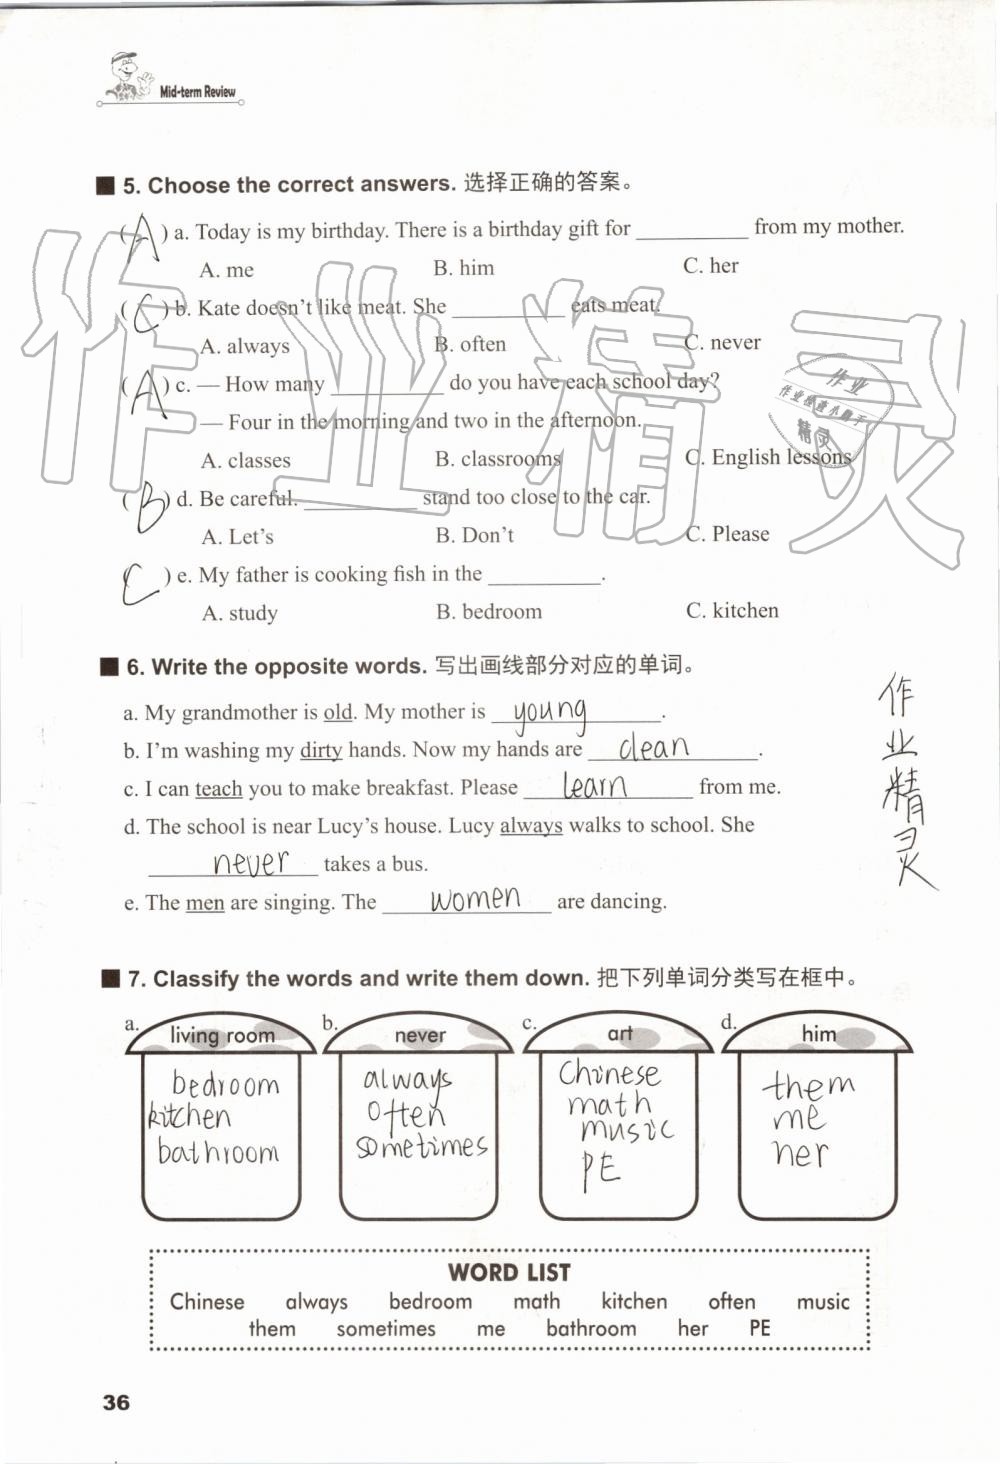 Mid-term Review
5. Choose the correct answers. 选择正确的答案。
( A ) a. Today is my birthday. There is a birthday gift for __________ from my mother.
A. me B. him C. her
( C ) b. Kate doesn't like meat. She __________ eats meat.
A. always B. often C. never
( A ) c. — How many __________ do you have each school day?
— Four in the morning and two in the afternoon.
A. classes B. classrooms C. English lessons
( B ) d. Be careful. __________ stand too close to the car.
A. Let's B. Don't C. Please
( C ) e. My father is cooking fish in the __________.
A. study B. bedroom C. kitchen
6. Write the opposite words. 写出画线部分对应的单词。
a. My grandmother is old. My mother is young.
b. I'm washing my dirty hands. Now my hands are clean.
c. I can teach you to make breakfast. Please learn from me.
d. The school is near Lucy's house. Lucy always walks to school. She
never takes a bus.
e. The men are singing. The women are dancing.
作业精灵
作业精灵
作业
作业检查小助手
精灵
7. Classify the words and write them down. 把下列单词分类写在框中。
a. living room b. never c. art d. him
bedroom always Chinese them
kitchen often math me
bathroom sometimes music her
PE
WORD LIST
Chinese always bedroom math kitchen often music
them sometimes me bathroom her PE
36